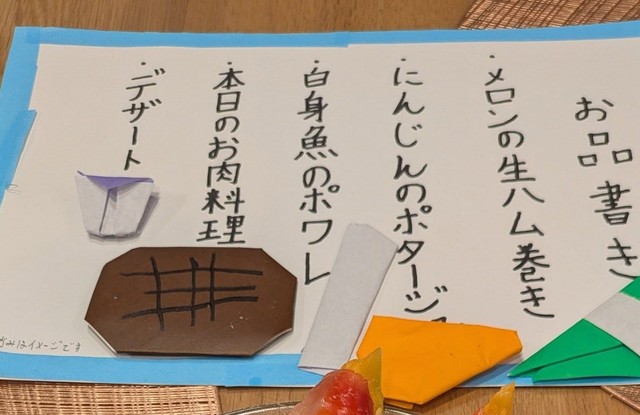 お品書き
・メロンの生ハム巻き
・にんじんのポタージュ
・白身魚のポワレ
・本日のお肉料理
・デザート
がみはイメージです